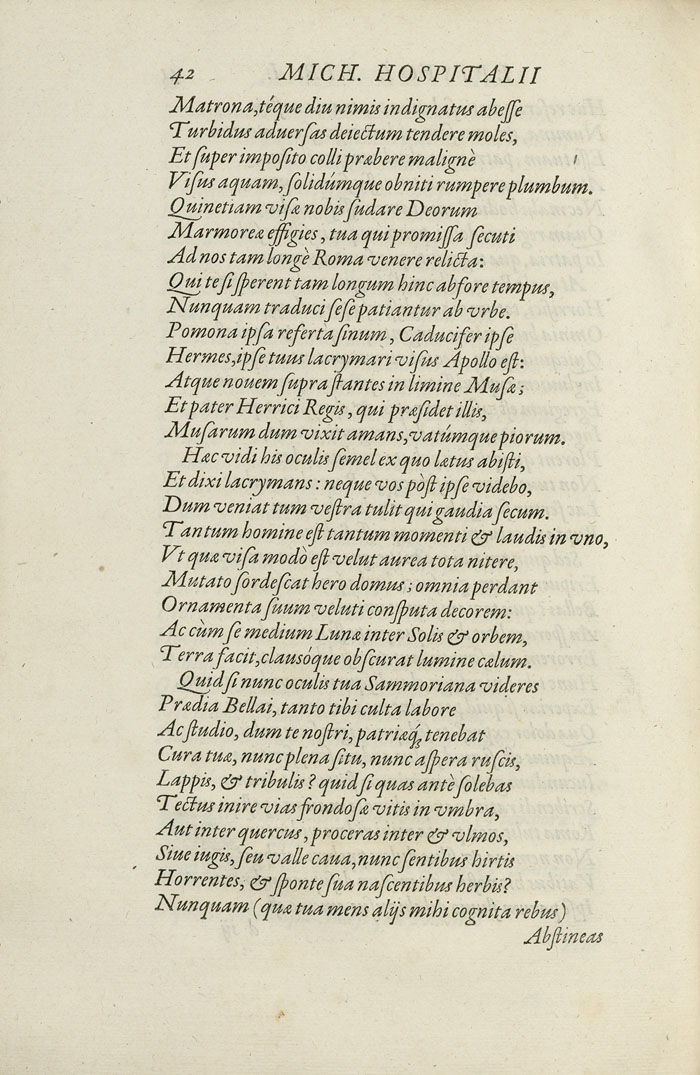 42 MICH. HOSPITALII
Matrona, téque diu nimis indignatus abeſſe
Turbidus aduerſas deiectum tendere moles,
Et ſuper impoſito colli præbere malignè
Viſus aquam, ſolidúmque obniti rumpere plumbum.
Quinetiam viſæ nobis ſudare Deorum
Marmoreæ effigies, tua qui promiſſa ſecuti
Ad nos tam longè Roma venere relicta:
Qui te ſi ſperent tam longum hinc abfore tempus,
Nunquam traduci ſeſe patiantur ab vrbe.
Pomona ipſa referta ſinum, Caducifer ipſe
Hermes, ipſe tuus lacrymari viſus Apollo eſt:
Atque nouem ſupra ſtantes in limine Muſæ;
Et pater Herrici Regis, qui præſidet illis,
Muſarum dum vixit amans, vatúmque piorum.
Hæc vidi his oculis ſemel ex quo lætus abiſti,
Et dixi lacrymans: neque vos pòſt ipſe videbo,
Dum veniat tum veſtra tulit qui gaudia ſecum.
Tantum homine eſt tantum momenti & laudis in vno,
Vt quæ viſa modò eſt velut aurea tota nitere,
Mutato ſordeſcat hero domus; omnia perdant
Ornamenta ſuum veluti conſputa decorem:
Ac cùm ſe medium Lunæ inter Solis & orbem,
Terra facit, clausóque obſcurat lumine cælum.
Quid ſi nunc oculis tua Sammoriana videres
Prædia Bellai, tanto tibi culta labore
Ac ſtudio, dum te noſtri, patriæq́; tenebat
Cura tuæ, nunc plena ſitu, nunc aſpera ruſcis,
Lappis, & tribulis? quid ſi quas antè ſolebas
Tectus inire vias frondoſæ vitis in vmbra,
Aut inter quercus, proceras inter & vlmos,
Siue iugis, ſeu valle caua, nunc ſentibus hirtis
Horrentes, & ſponte ſua naſcentibus herbis?
Nunquam (quæ tua mens alijs mihi cognita rebus)
Abſtineas